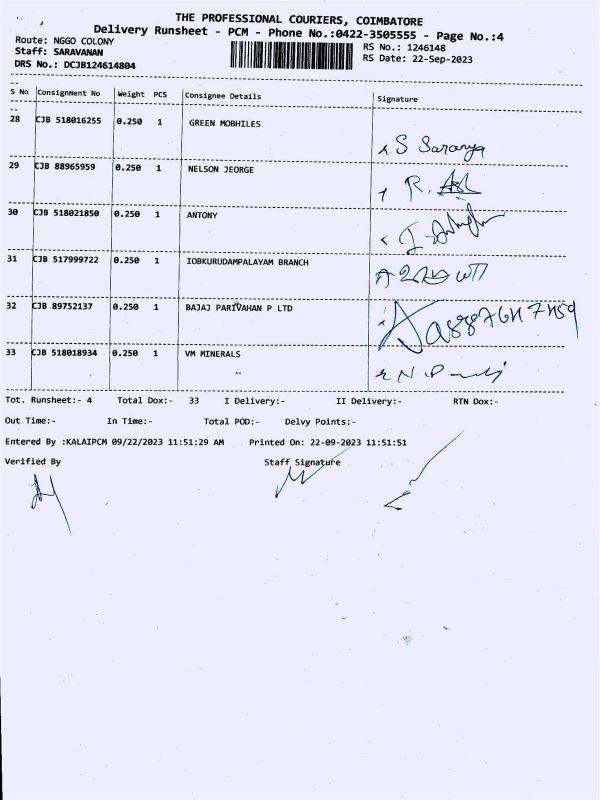 THE PROFESSIONAL COURIERS, COIMBATORE
Delivery Runsheet - PCM - Phone No.:0422-3505555 - Page No.:4
Route: NGGO COLONY
Staff: SARAVANAN
DRS No.: DCJB124614804
RS No.: 1246148
RS Date: 22-Sep-2023
S No Consignment No Weight PCS Consignee Details Signature
28 CJB 518016255 0.250 1 GREEN MOBHILES
S Saranya
29 CJB 88965959 0.250 1 NELSON JEORGE
R.
30 CJB 518021850 0.250 1 ANTONY
31 CJB 517999722 0.250 1 IOBKURUDAMPALAYAM BRANCH
32 CJB 89752137 0.250 1 BAJAJ PARIVAHAN P LTD
33 CJB 518018934 0.250 1 VM MINERALS
Tot. Runsheet:- 4 Total Dox:- 33 I Delivery:- II Delivery:- RTN Dox:-
Out Time:- In Time:- Total POD:- Delvy Points:-
Entered By :KALAIPCM 09/22/2023 11:51:29 AM Printed On: 22-09-2023 11:51:51
Verified By Staff Signature